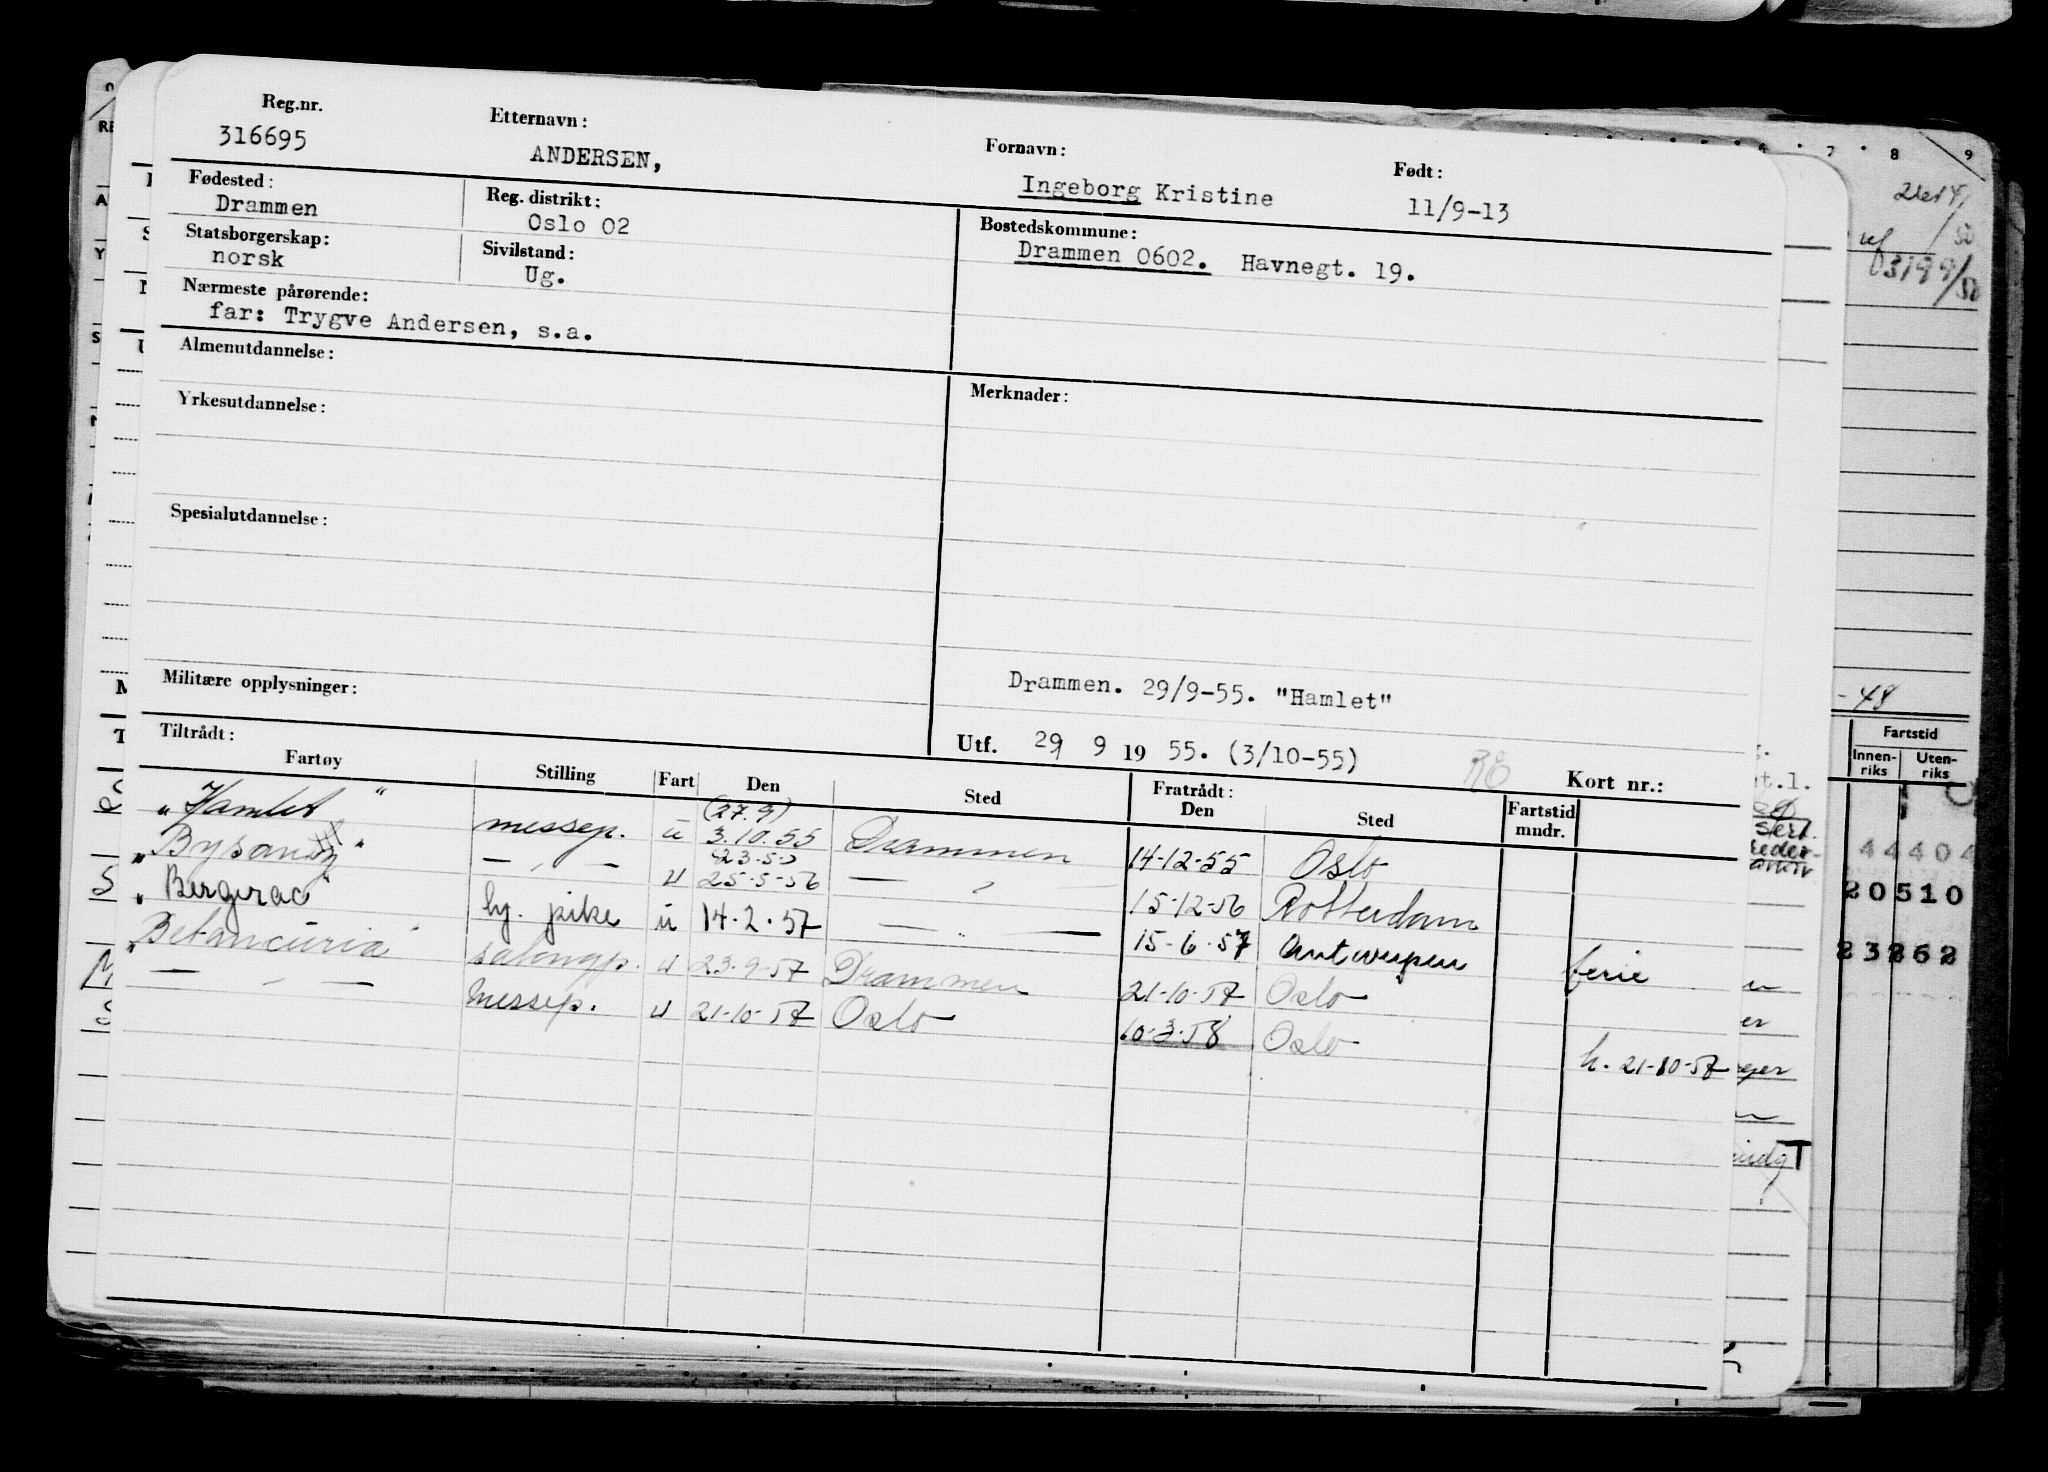 Reg.nr. Etternavn: Fornavn: Født:
316695 ANDERSEN, Ingeborg Kristine 11/9-13
Fødested: Reg. distrikt: Bostedskommune:
Drammen Oslo 02 Drammen 0602. Havnegt. 19.
Statsborgerskap: Sivilstand:
norsk Ug.
Nærmeste pårørende:
far: Trygve Andersen, s.a.
Almenutdannelse: Merknader:
Yrkesutdannelse:
Spesialutdannelse:
Militære opplysninger: Drammen. 29/9-55. "Hamlet"
Tiltrådt: Utf. 29 9 19 55. (3/10-55) Kort nr.:
Fartøy Stilling Fart Den Sted Fratrådt: Den Sted Fartstid mndr.
(27.9)
"Hamlet" messep. u 3.10.55 Drammen 14-12-55 Oslo
23-5-
" — u 25-5-56 — " — 15-12-56 Rotterdam
"Bergerac" hj. pike u 14-2-57 — " — 15-6-57 Antwerpen ferie
"Betancuria" salongp. u 23-9-57 Drammen 21-10-57 Oslo
— " — messep. u 21-10-57 Oslo 10-3-58 Oslo h. 21-10-57
7 8 9
03199/50
-48
Fartstid
Innen-riks Uten-riks
44404
20510
23262